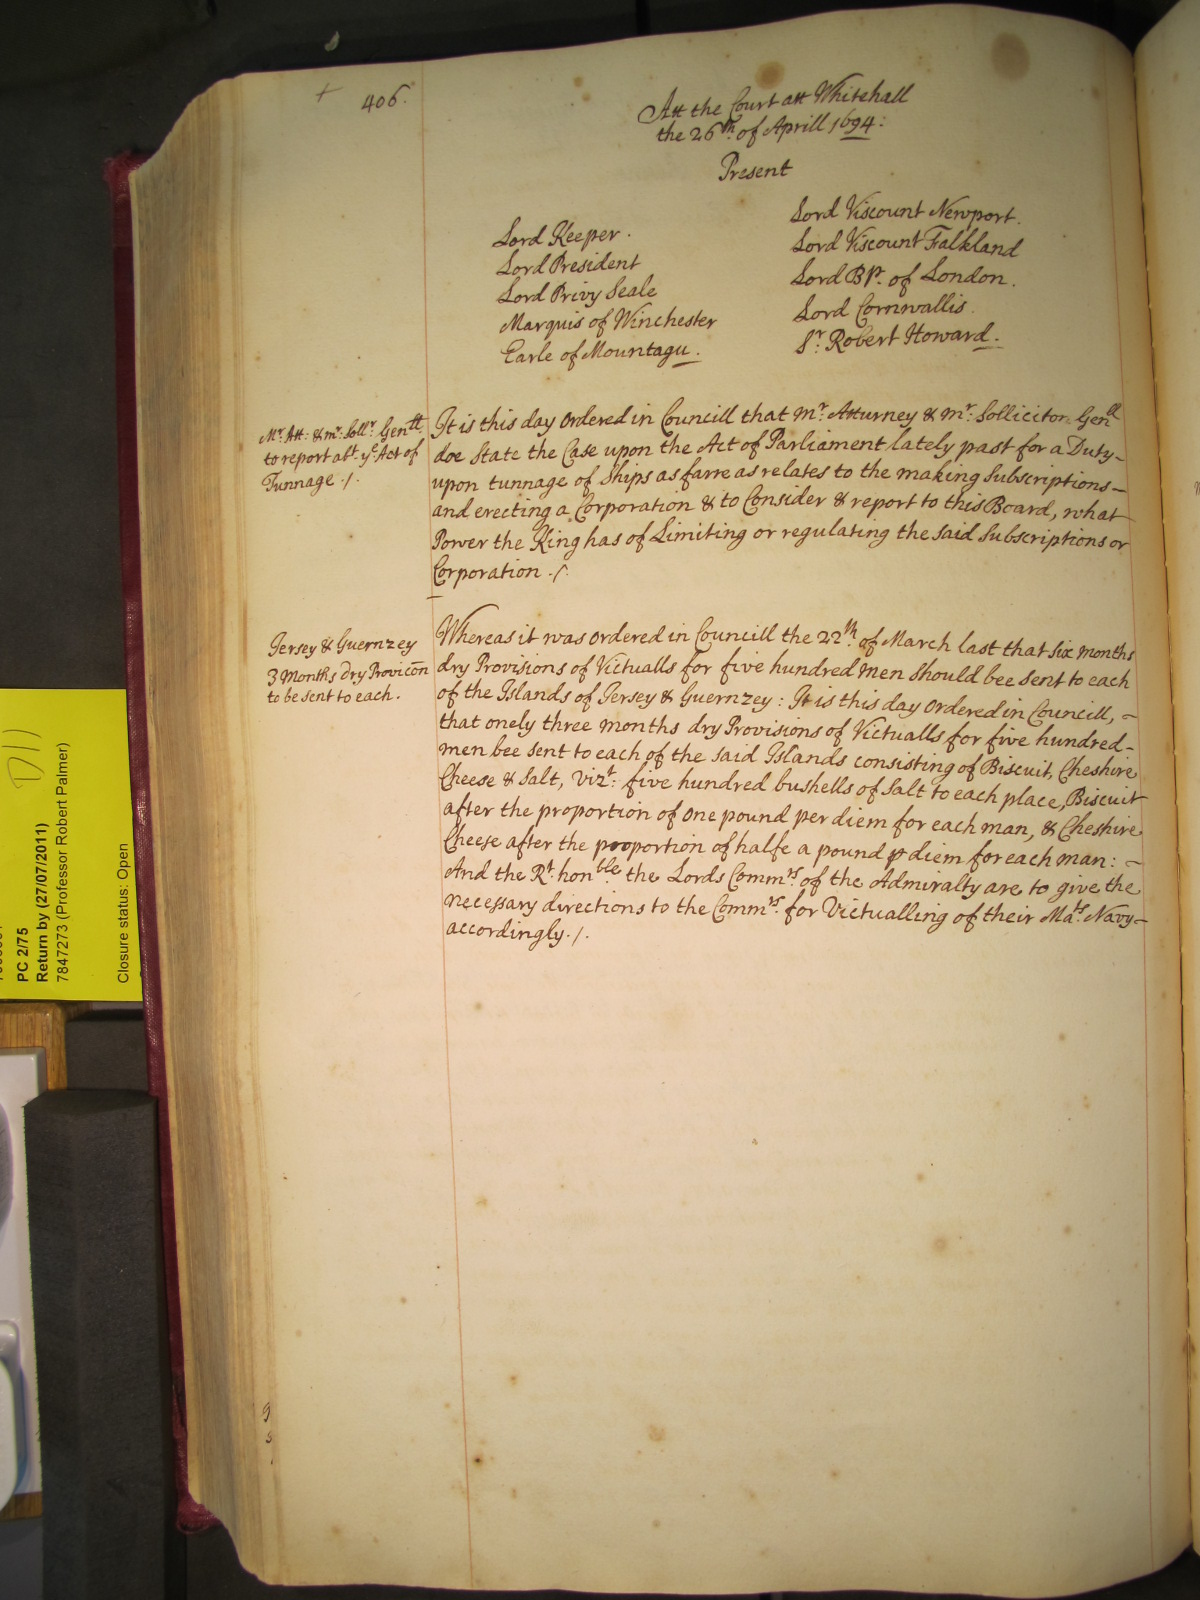 406.
Att the Court att Whitehall
the 26th. of Aprill 1694:
Present
Lord Keeper.
Lord President
Lord Privy Seale
Marquis of Winchester
Earle of Mountagu.
Lord Viscount Newport.
Lord Viscount Falkland
Lord Bp. of London.
Lord Cornwallis.
Sr. Robert Howard.
Mr. Att: & mr. Sollr. Genll.
to report abt. ye. Act of
Tunnage ./.
It is this day Ordered in Councill that Mr. Atturney & Mr. Sollicitor Genll
doe State the Case upon the Act of Parliament lately past for a Duty-
upon tunnage of Ships as farre as relates to the making Subscriptions-
and erecting a Corporation & to Consider & report to this Board, what
Power the King has of Limiting or regulating the said Subscriptions or
Corporation ./.
Jersey & Guernzey
3 Months dry Provicõn
to be sent to each.
Whereas it was Ordered in Councill the 22th. of March last that Six months
dry Provisions of Victualls for five hundred men should bee sent to each
of the Islands of Jersey & Guernzey: It is this day Ordered in Councill, -
that onely three months dry Provisions of Victualls for five hundred-
men bee sent to each of the said Islands consisting of Biscuit, Cheshire
Cheese & Salt, Vizt: five hundred bushells of Salt to each place, Biscuit
after the proportion of one pound per diem for each man, & Cheshire
Cheese after the proportion of halfe a pound ꝑ diem for each man: -
And the Rt. honble. the Lords Commrs. of the Admiralty are to give the
necessary directions to the Commrs. for Victualling of their Mats. Navy-
accordingly ./.
PC 2/75
Return by (27/07/2011)
7847273 (Professor Robert Palmer)
Closure status: Open